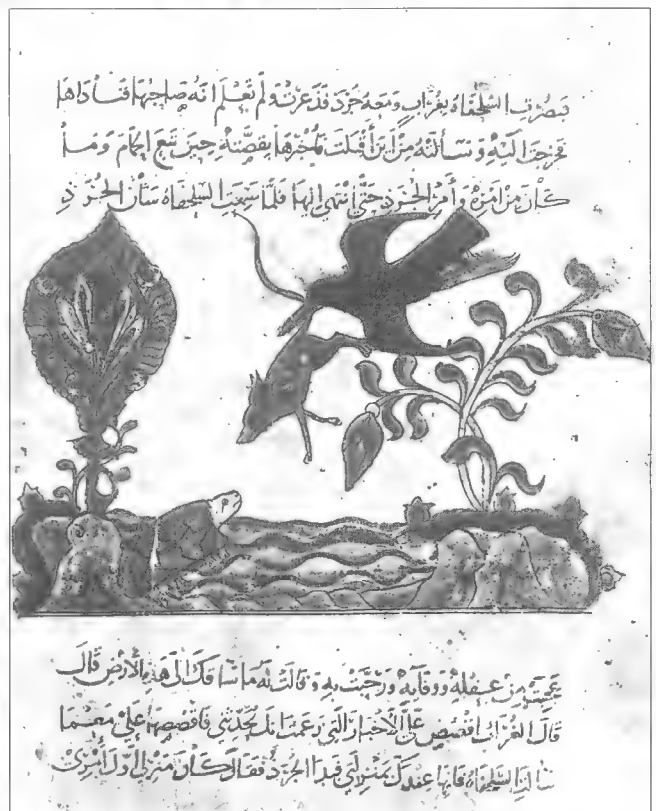 فبصرت السلحفاه بغراب ومعه جرذ فذعرت ولم تعلم انه صاحبها فناداها
فخرجت اليه وسألته من اين أقبلت فأخبرها بقصته حين تبع الحمام وما
كان من امره وأمر الجرذ حتى انتهى اليها فلما سمعت السلحفاه شأن الجرذ
عجبت من عقله ووفايه ورحبت به وقالت له ما ساقك الى هذه الارض قال
قال الغراب اقصص على الأخبار التي زعمت انك تحدثني فاقصصها على مع ما
سالت السلحفاه فانها عندك بمنزلتي فبدا الجرذ فقال كان منزلي اول امري